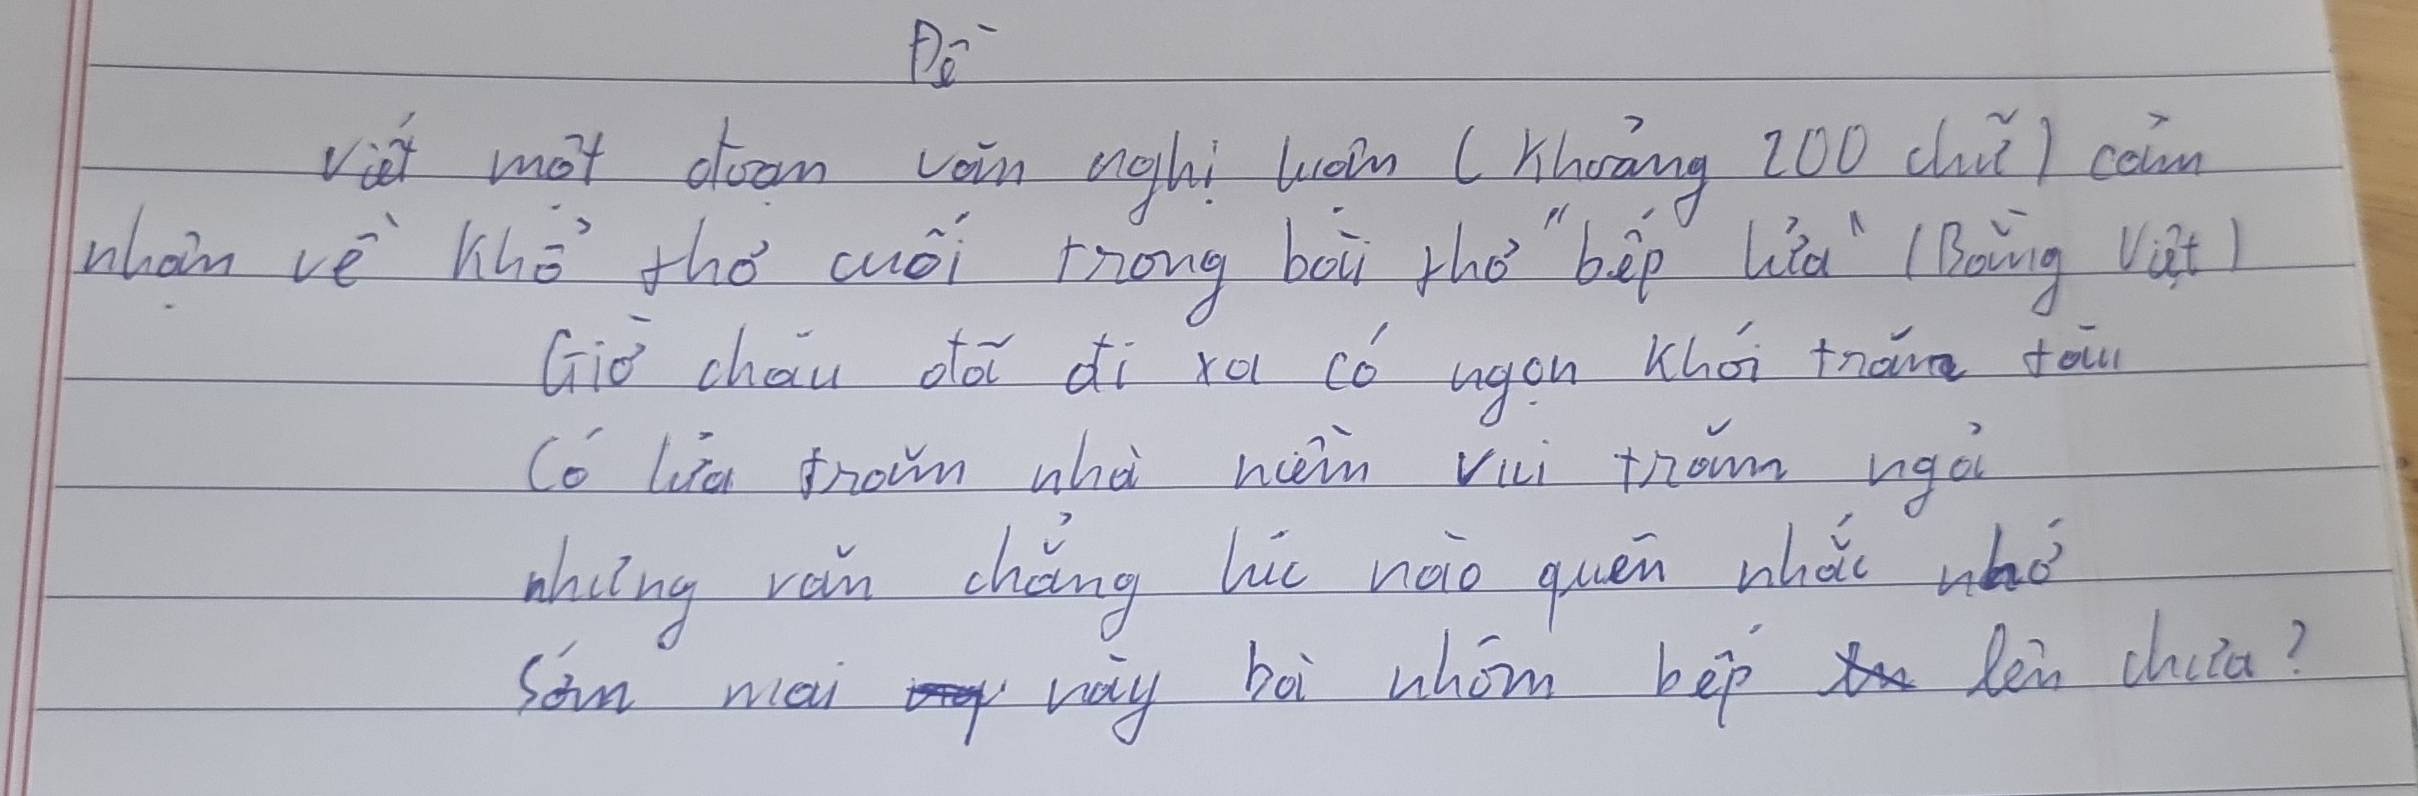 Đề
Viết một đoạn văn nghị luận (Khoảng 200 chữ) cảm
nhận về khổ thơ cuối trong bài thơ "bếp lửa" (Bằng Việt)
Giờ cháu đã đi xa có ngọn khói trăm tàu
Có lửa trăm nhà niềm vui trăm ngả
nhưng vẫn chẳng lúc nào quên nhắc nhở
Sớm mai này bà nhóm bếp lên chưa?